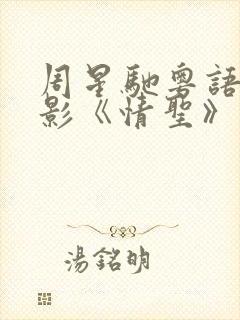 周星馳粵語
影《情聖》
湯銘明